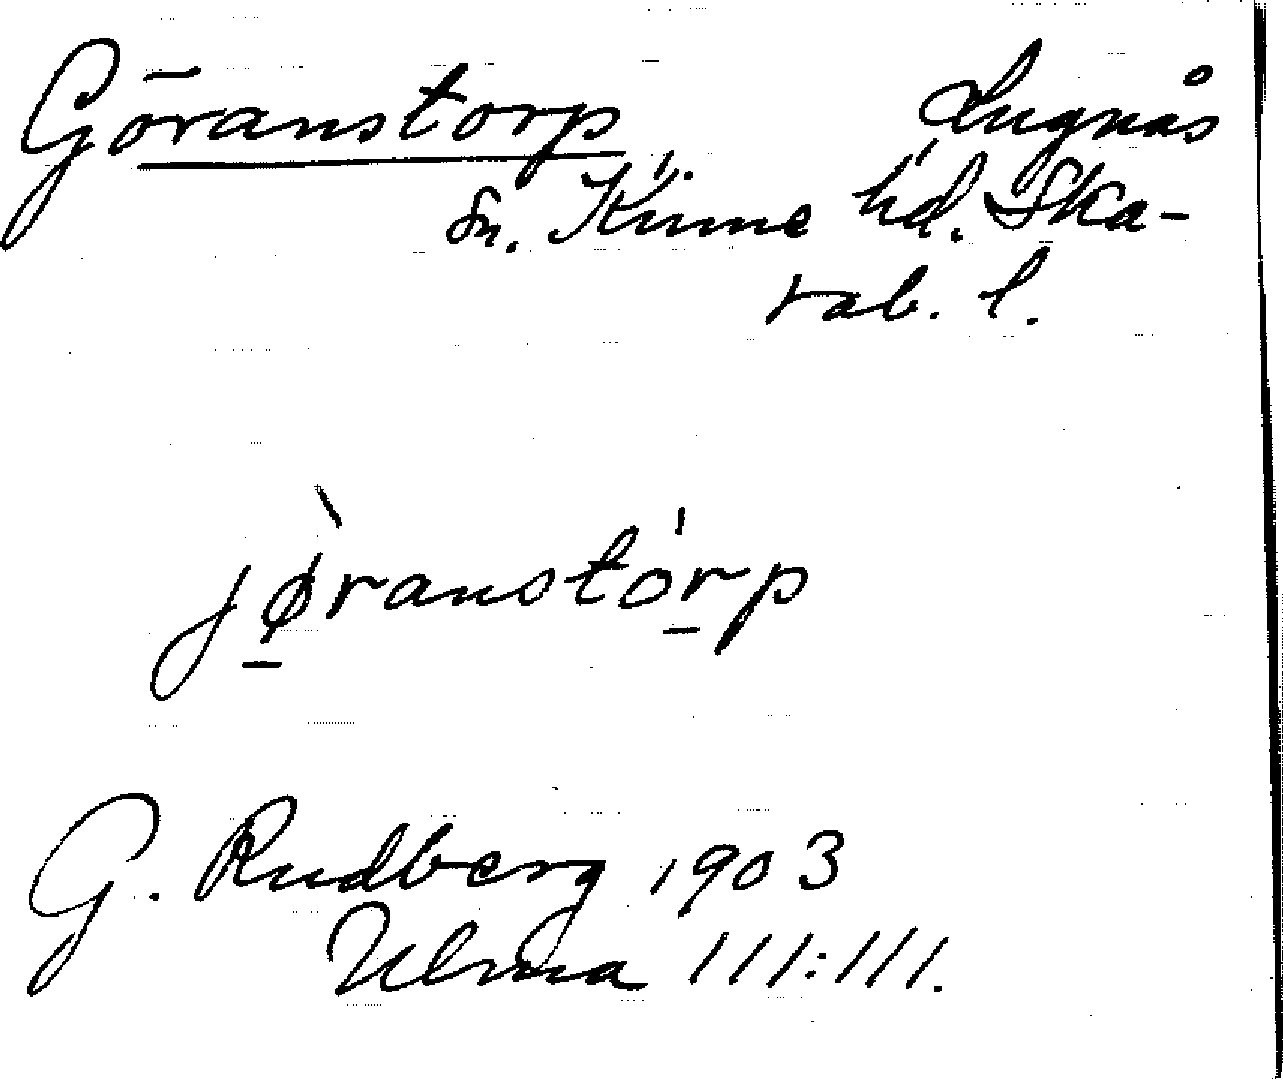 Göranstorp Lugnås
sn. Kinne hd. Ska-
rab. l.
jø̀ranstórp
G. Rudberg 1903
Ulma 111:111.